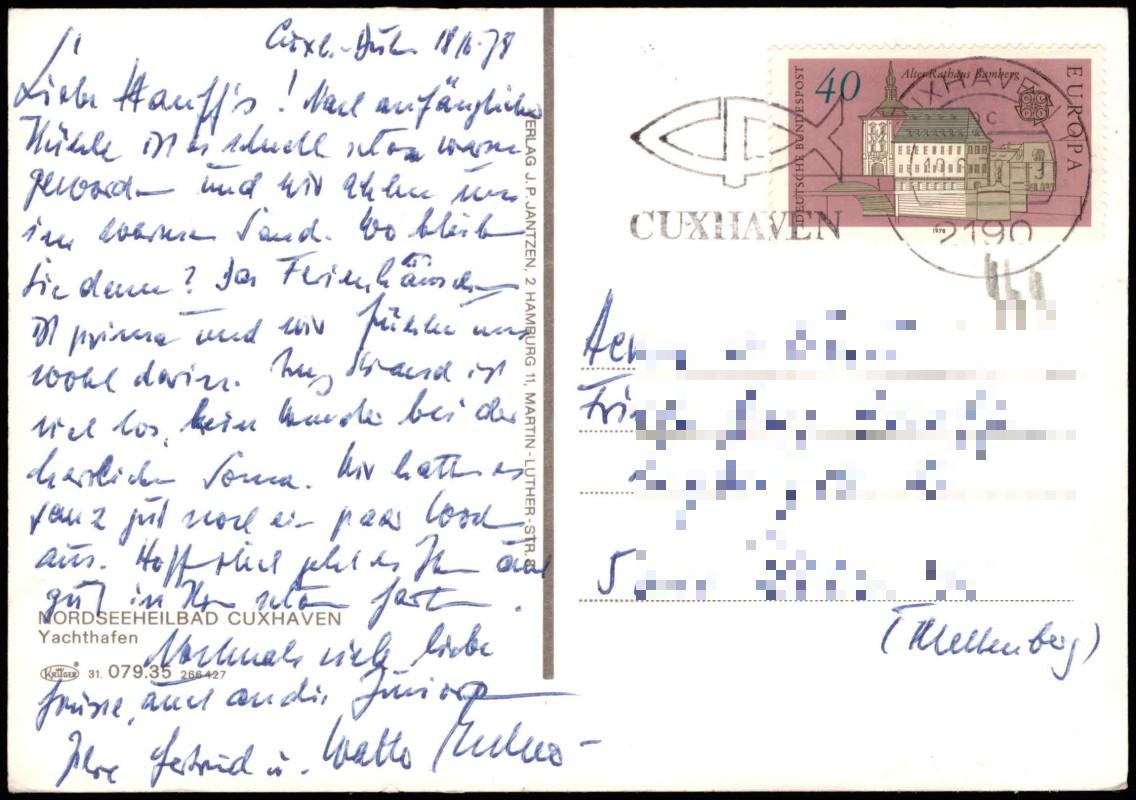 Cuxh.-Duhn 18/6.78
Liebe Hauff's! Nach anfänglicher
Kühle ist es schnell schön warm
geworden und wir aalen uns
im warmen Sand. Wo bleiben
Sie denn? Das Ferienhäuschen
ist prima und wir fühlen uns
wohl darin. Am Strand ist
viel los, kein Wunder bei der
herrlichen Sonne. Wir halten es
ganz gut noch ein paar Wochen
aus. Hoffentlich geht es Ihnen auch
gut in Ihrem schönen Garten.
Nochmals viele liebe
Grüsse, auch an die Junioren
Ihre Gertrud u. Walter
NORDSEEHEILBAD CUXHAVEN
Yachthafen
KRÜGER 31. 079.35 266427
VERLAG J. P. JANTZEN, 2 HAMBURG 11, MARTIN-LUTHER-STR.
CUXHAVEN
DEUTSCHE BUNDESPOST
40
Altes Rathaus Bamberg
EUROPA
1978
CUXHAVEN
2190
5